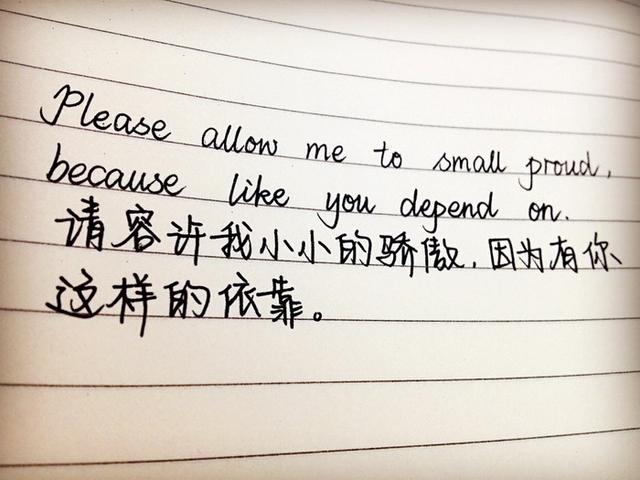 Please allow me to small proud,
because like you depend on.
请容许我小小的骄傲,因为有你、
这样的依靠。